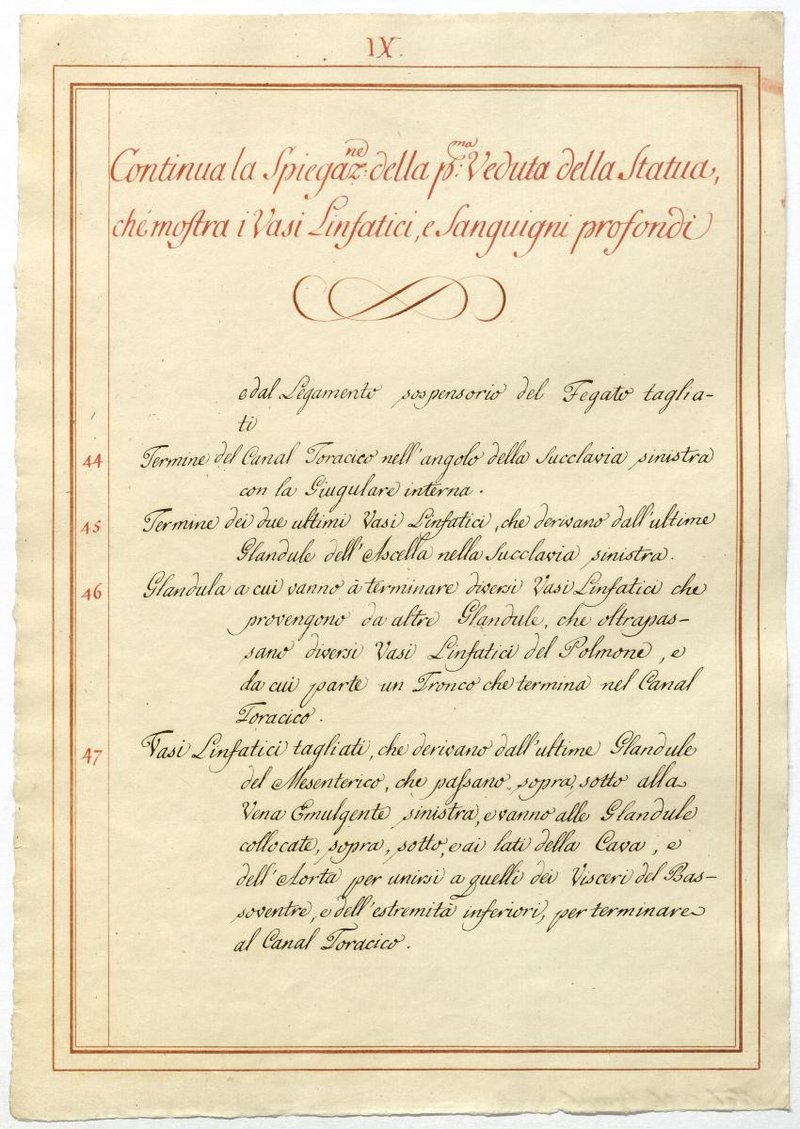 IX.
Continua la Spiegaz.ne della p.ma Veduta della Statua,
che mostra i Vasi Linfatici, e Sanguigni profondi
e dal Legamento sospensorio del Fegato taglia-
ti
44 Termine del Canal Toracico nell'angolo della Succlavia sinistra
con la Giugulare interna.
45 Termine dei due ultimi Vasi Linfatici, che derivano dall'ultime
Glandule dell'Ascella nella Succlavia sinistra.
46 Glandula a cui vanno à terminare diversi Vasi Linfatici che
provengono da altre Glandule, che oltrapas-
sano diversi Vasi Linfatici del Polmone, e
da cui parte un Tronco che termina nel Canal
Toracico.
47 Vasi Linfatici tagliati, che derivano dall'ultime Glandule
del Mesenterico, che passano, sopra, sotto alla
Vena Emulgente sinistra, e vanno alle Glandule
collocate, sopra, sotto, e ai lati della Cava, e
dell'Aorta per unirsi a quelli dei Visceri del Bas-
soventre, e dell'estremità inferiori, per terminare
al Canal Toracico.